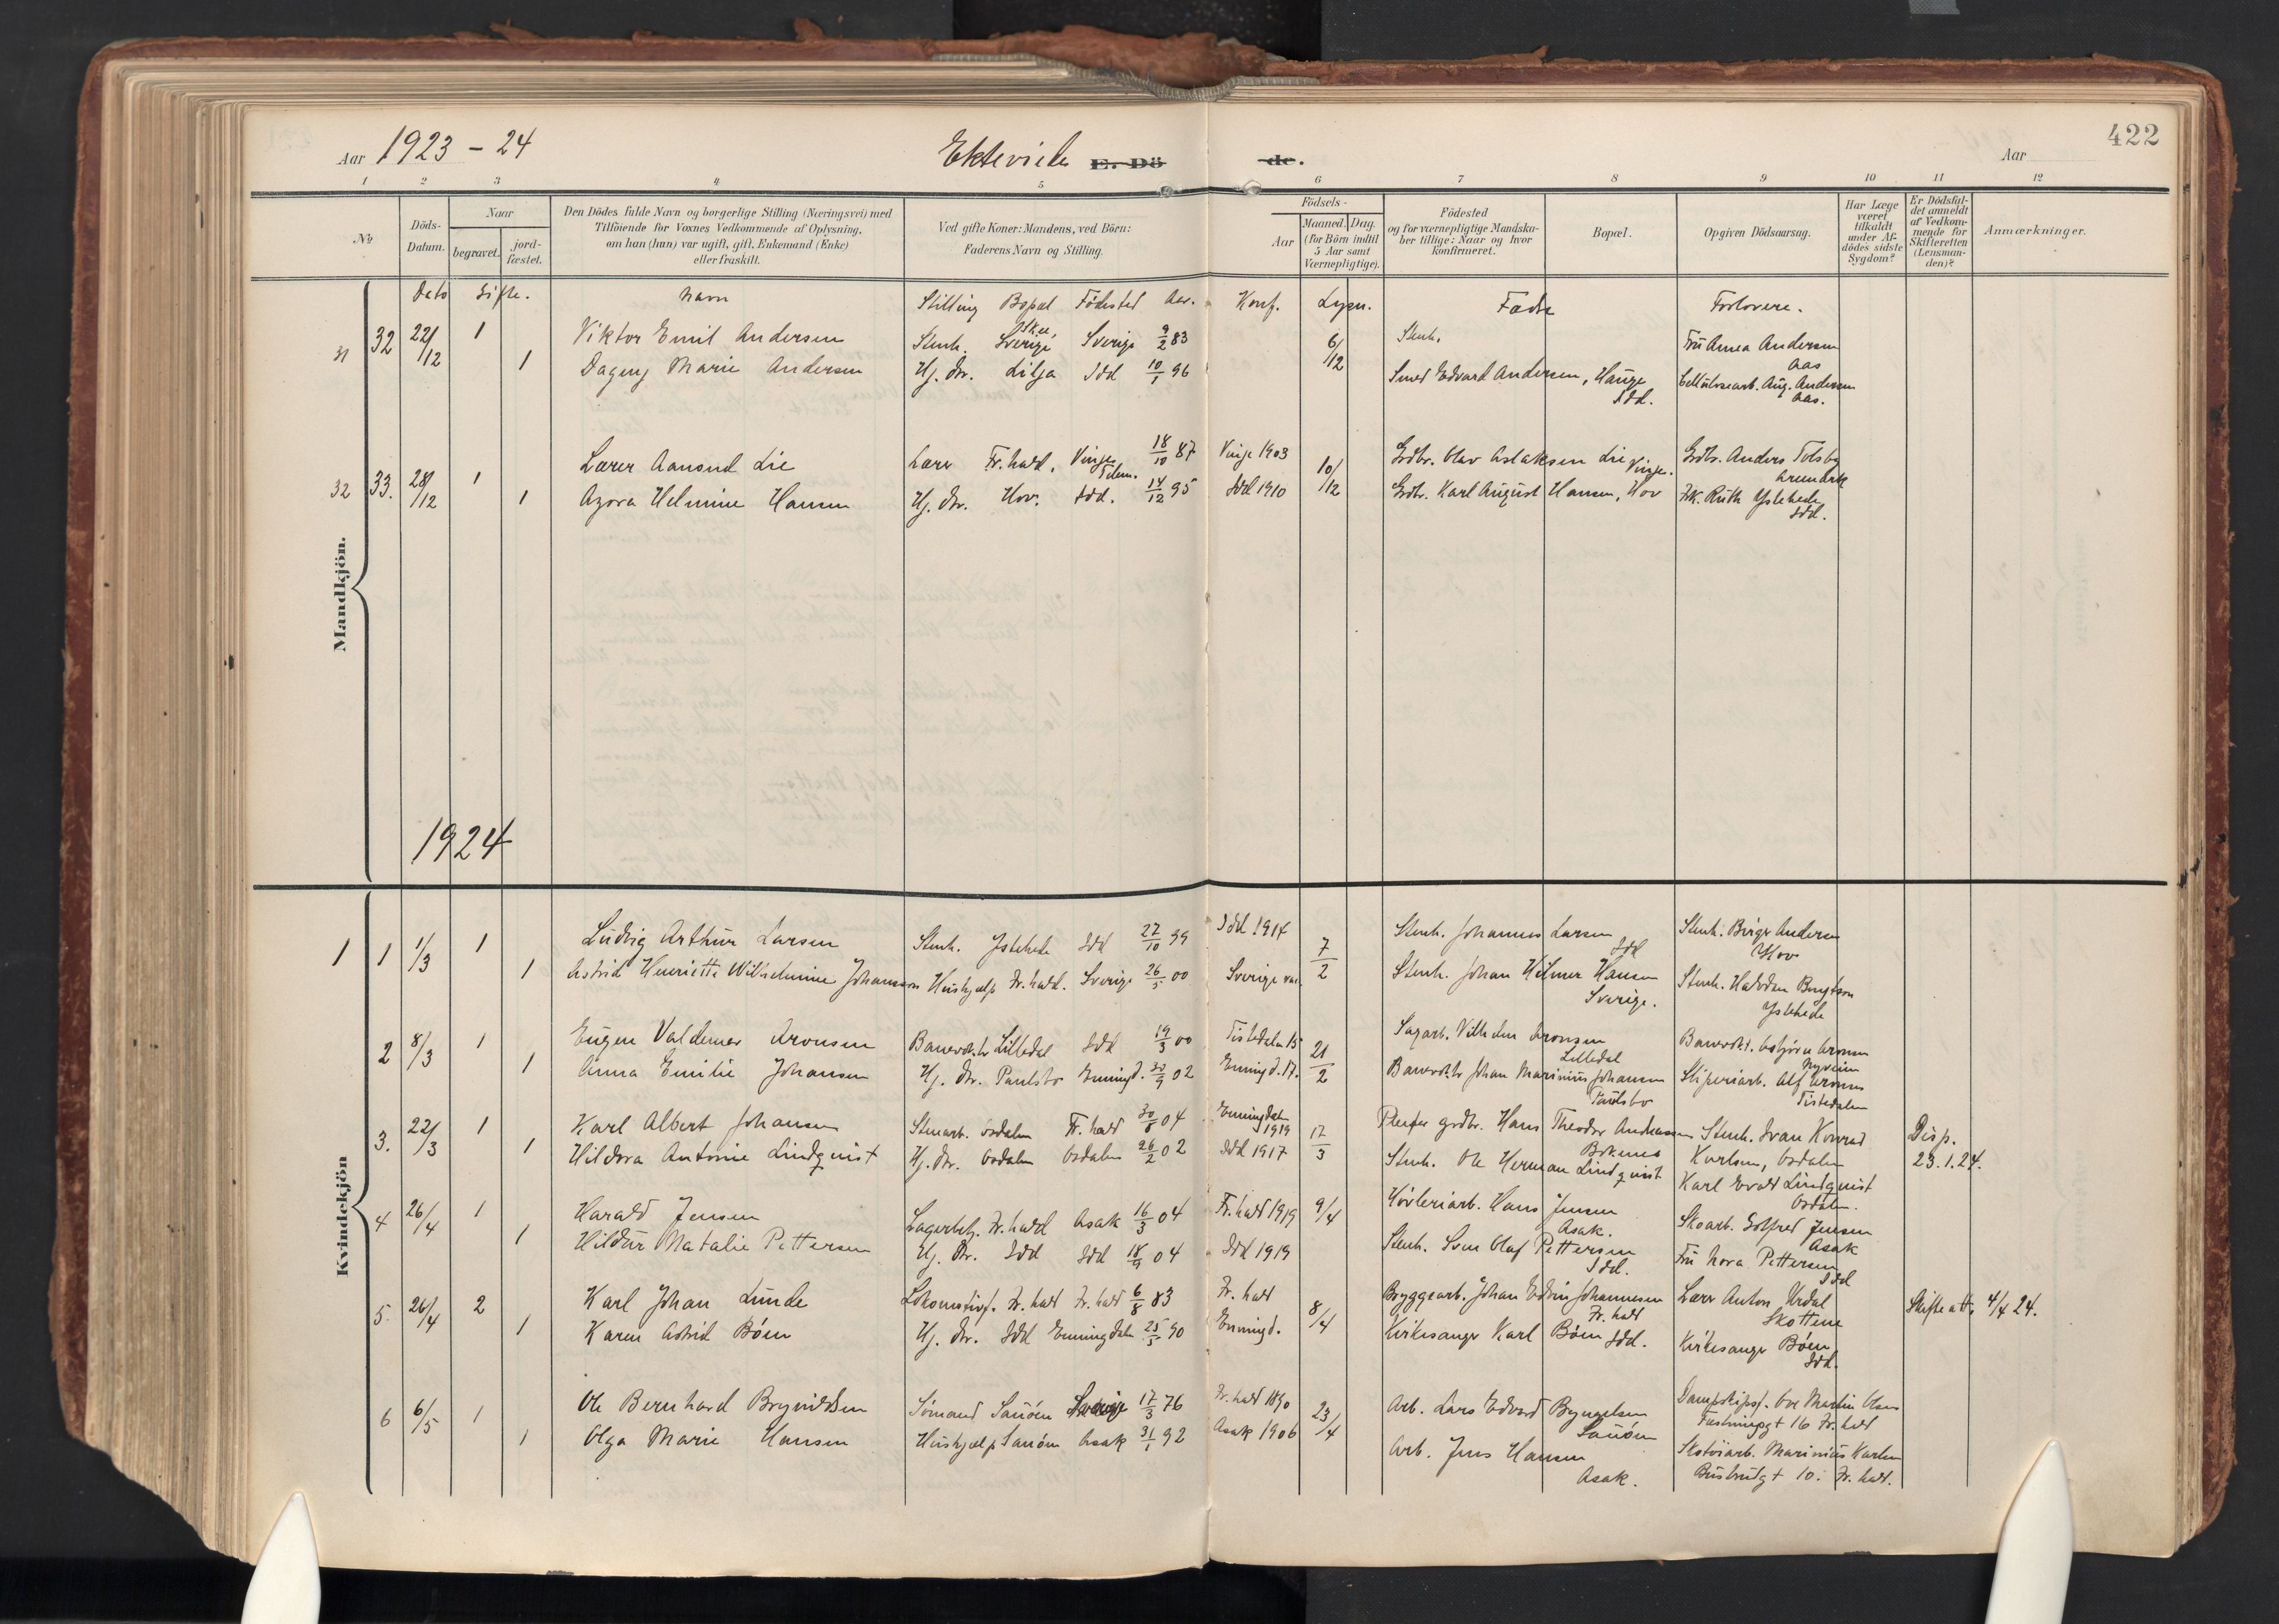 Aar 1923 - 24
Ektevielse E. Döde.
Aar
422
1 2 3 4 5 6 7 8 9 10 11 12
No
Döds-Datum.
Naar
begravet.
jordfæstet.
Den Dödes fulde Navn og borgerlige Stilling (Næringsvei) med
Tilföiende for Voxnes Vedkommende af Oplysning,
om han (hun) var ugift, gift, Enkemand (Enke)
eller fraskilt.
Ved gifte Koner: Mandens, ved Börn:
Faderens Navn og Stilling.
Födsels-
Aar
Maaned. Dag.
(for Börn indtil
5 Aar samt
Værnepligtige).
Födested
og for værnepligtige Mandskaber tillige: Naar og hvor
konfirmeret.
Bopæl.
Opgiven Dödsaarsag.
Har Læge
været
tilkaldt
under Afdödes sidste
Sygdom?
Er Dödsfaldet anmeldt
af Vedkommende for
Skifteretten
(Lensmanden)?
Anmærkninger.
Mandkjön.
Dato Gifte. Navn Stilling Bopæl Fødested Aar. Konf. Lysn. Fader Forlovere.
31 32 22/12 1 Viktor Emil Andersen Stenh. Skee, Sverige Sverige 9/2 83 6/12 Stenh. Fru Anna Andersen Aas
1 Dagny Marie Andersen Hj. Dtr. Lilja Idd 10/1 96 Smed Edvard Andersen, Hauge Idd. Cellulosearb. Aug. Andersen Aas.
32 33. 28/12 1 Lærer Aamund Lie Lærer Fr.hald. Vinje Telem. 18/10 87 Vinje 1903 10/12 Grdbr. Olav Aslaksen Lie Vinje. Grdbr. Anders Tolsby Aremark
1 Azora Helmine Hansen Hj. Dtr. Hov. Idd. 14/12 95 Idd 1910 Grdbr. Karl August Hansen, Hov Frk. Ruth Ystehede Idd.
1924
Kvindekjön
1 1 1/3 1 Ludvig Arthur Larsen Stenh. Ystehede Idd 27/10 99 Idd 1914 7/2 Stenh. Johannes Larsen Idd Stenh. Birger Andersen Hov
1 Astrid Henriette Wilhelmine Johansson Hushjælp Fr.hald. Sverige 26/5 00 Sverige Stenh. Johan Hilmer Hansen Sverige. Stenh. Halvdan Bengtson Ystehede
2 8/3 1 Eugen Valdemar Aronsen Banevokter Lilledal Idd 19/3 00 Tistedalen 15 21/2 Sagarb. Vilhelm Aronsen Lilledal Banevokt. Asbjørn Aronsen Nyveien
1 Anna Emilie Johansen Hj. Dtr. Paulsbo Enningd. 30/9 02 Enningd. 17. Banevokter Johan Marinius Johansen Paulsbo Sliperiarb. Alf Aronsen Tistedalen
3. 22/3 1 Karl Albert Johansen Stenarb. Osdalen Fr.hald 30/8 04 Enningdalen 1919 17/3 Pleiefar grdbr. Hans Theodor Andreassen Stenh. Ivan Konrad Karlsen, Osdalen Disp. 23.1.24.
1 Hildora Antonie Lindqvist Hj. Dtr. Osdalen Osdalen 26/2 02 Idd 1917 Stenh. Ole Herman Lindqvist Karl Evald Lindqvist Osdalen.
4 26/4 1 Harald Jensen Lagerbetj. Fr.hald Asak 16/3 04 Fr.hald 1919 9/4 Høvleriarb. Hans Jensen Asak. Skoarb. Golfred Jensen Asak
1 Hildur Natalie Pettersen Hj. Dtr. Idd Idd 18/9 04 Idd 1919 Stenh. Sven Olaf Pettersen Idd. Fru Nora Pettersen Idd
5. 26/4 2 Karl Johan Lunde Lokomotivf. Fr.hald Fr.hald 6/8 83 Fr.hald 8/4 Bryggearb. Johan Edvin Johannesen Fr.hald Lærer Anton Urdal Skottene Skifteatt. 4/4 24.
1 Karen Astrid Bøen Hj. Dtr. Idd Enningdalen 25/5 90 Enningd. Kirkesanger Karl Bøen Idd. Kirkesanger Bøen Idd.
6 6/5 1 Ole Bernhard Brynildsen Sömand Sauöen Sverige 17/3 76 Fr.hald 1890 23/4 Arb. Lars Edvard Byngelsen Sauöen Dampskipsf. Ove Martin Olsen Fæstningsgt 16 Fr.hald
1 Olga Marie Hansen Hushjælp Sauöen Asak 31/1 92 Asak 1906 Arb. Jens Hansen Asak. Skotöiarb. Marinius Karlsen Busterudgt 10. Fr.hald.